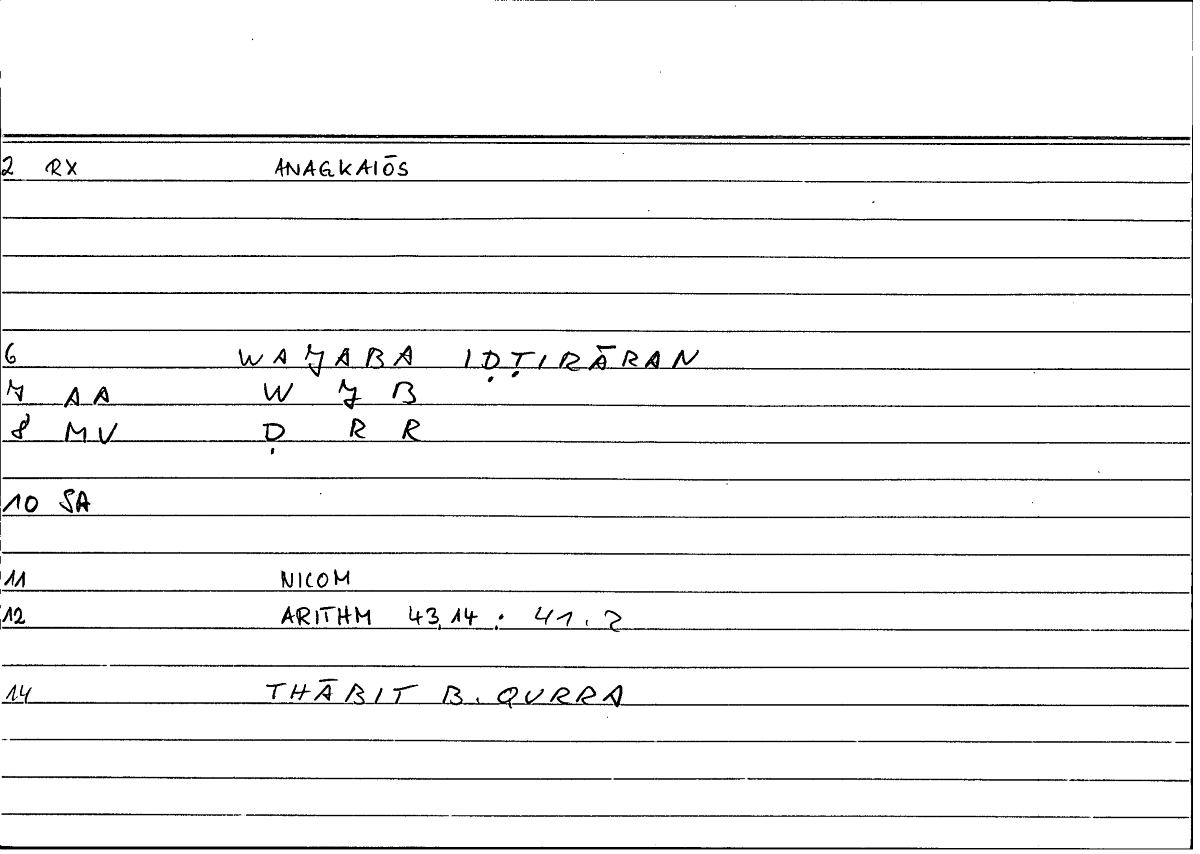 2 RX ANAGKAIŌS
6 WAJABA IḌṬIRĀRAN
7 AA W J B
8 MV Ḍ R R
10 SA
11 NICOM
12 ARITHM 43,14 : 41.2
14 THĀBIT B. QURRA